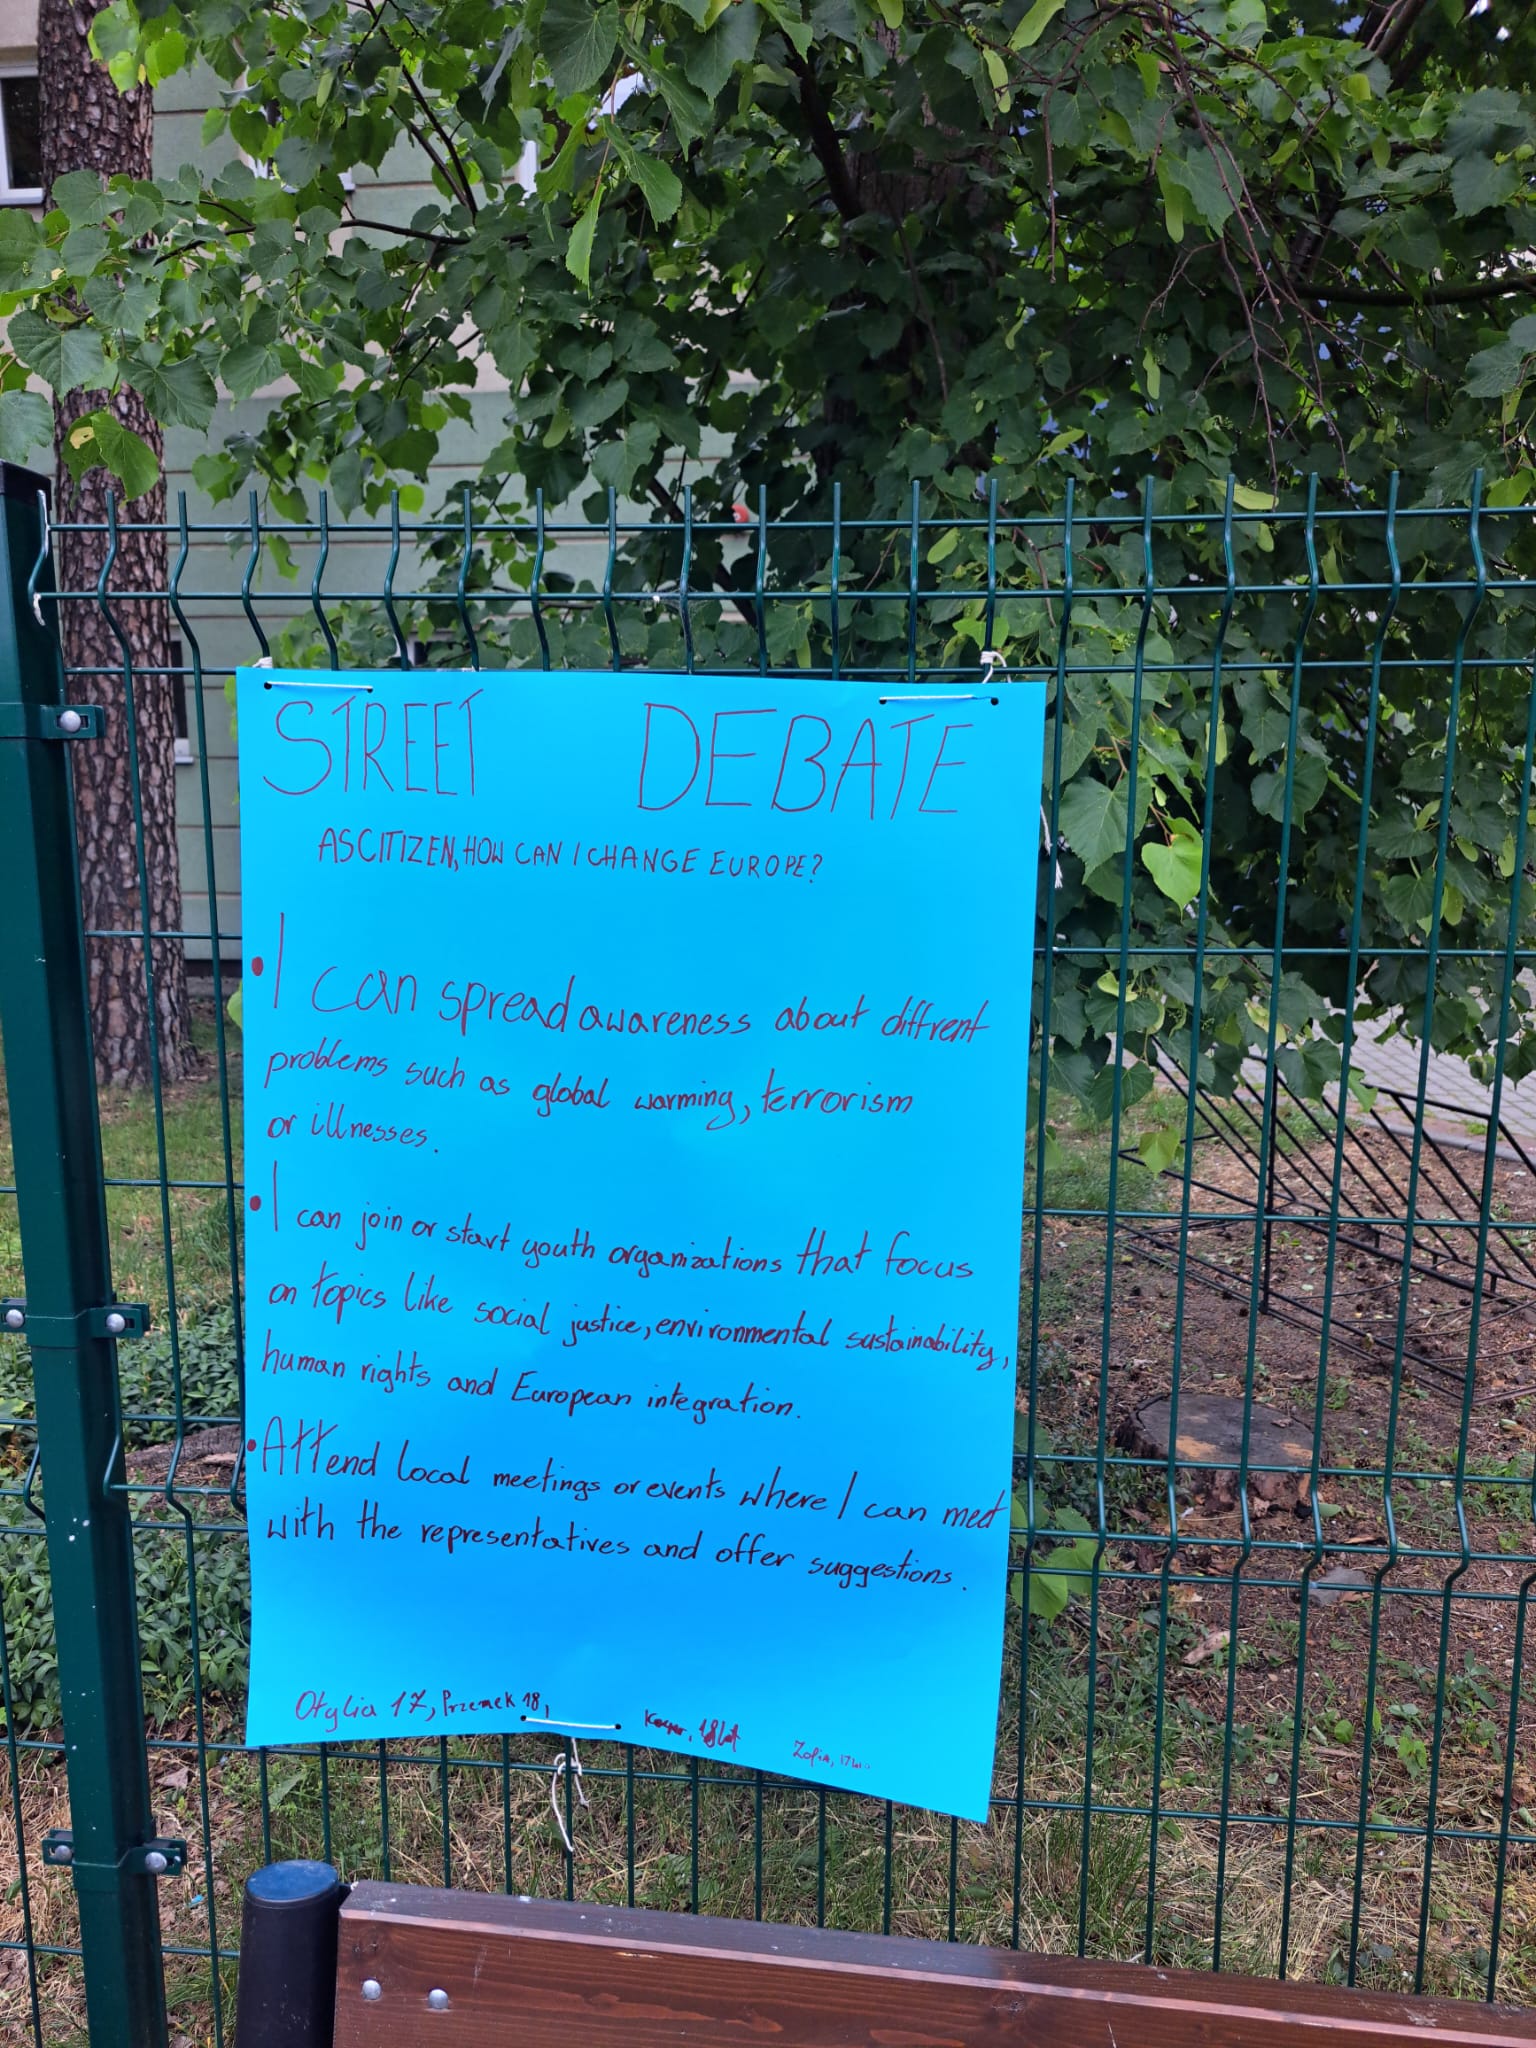 STREET DEBATE
AS CITIZEN, HOW CAN I CHANGE EUROPE?
• I can spread awareness about diffrent
problems such as global warming, terrorism
or illnesses.
• I can join or start youth organizations that focus
on topics like social justice, environmental sustainability,
human rights and European integration.
• Attend local meetings or events where I can meet
with the representatives and offer suggestions.
Otylia 17, Przemek 18, Kacper, 18 lat Zofia, 17